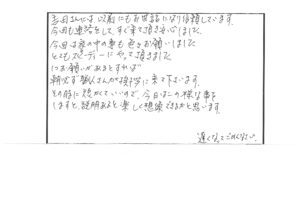 志田さんには以前にもお世話になり信頼しています。
今回も連絡をして、すぐ来て頂き安心しました
今回は家の中の事も色々お願いしました
とてもスピーディーにやって頂きました
1つお願いがあるとすれば
朝必ず職人さんが挨拶に来て下さいます。
その時に短かくていいので、今日はこの様な事を
しますと、説明あると楽しく想像できるかと思います。
遅くなってごめんなさい。